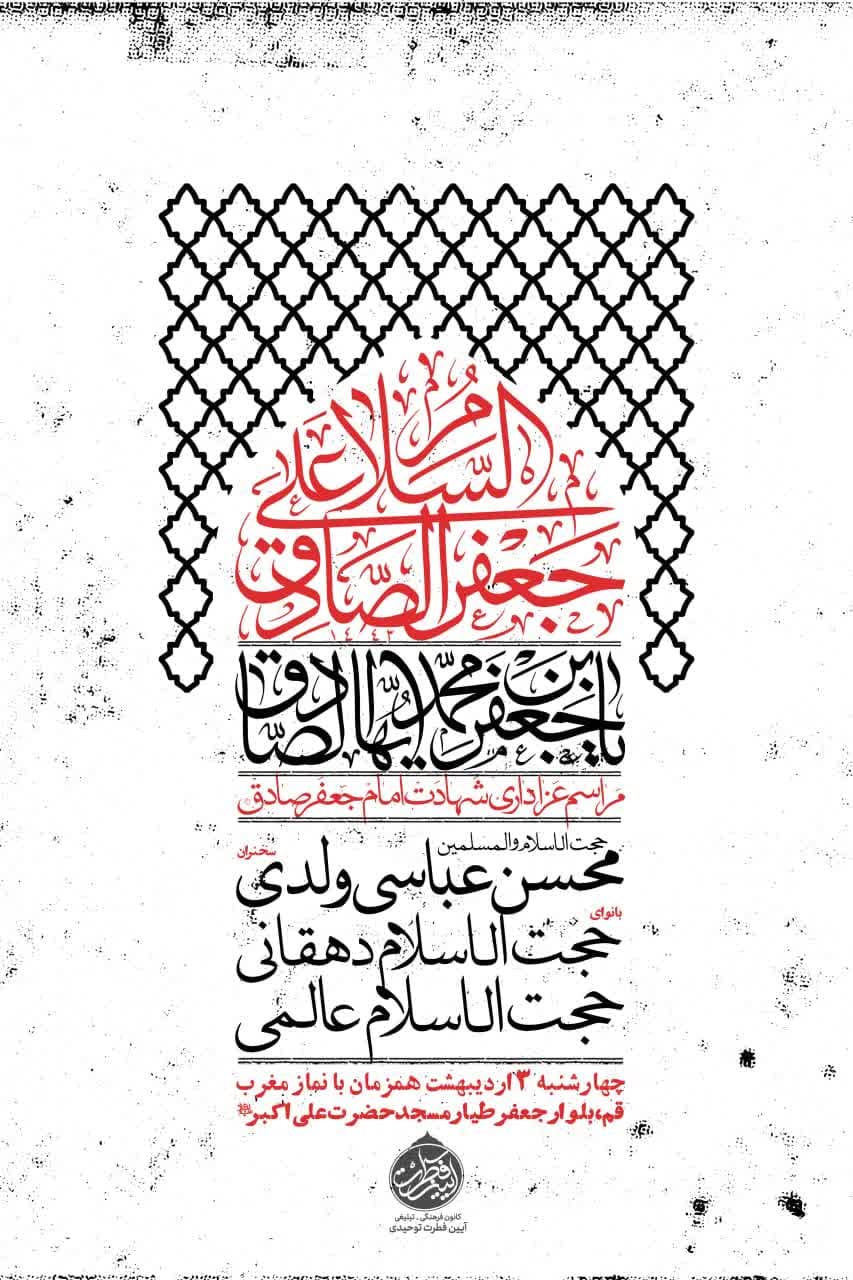 السلام علی
جعفر الصادق
۱٤٤٢
یا جعفر بن محمد ایها الصادق
مراسم عزاداری شهادت امام جعفر صادق
حجت الاسلام والمسلمین
سخنران
محسن عباسی ولدی
بانوای
حجت الاسلام دهقانی
حجت الاسلام عالمی
چهارشنبه ۳ اردیبهشت همزمان با نماز مغرب
قم، بلوار جعفر طیار مسجد حضرت علی اکبر
آیین فطرت
کانون فرهنگی - تبلیغی
آیین فطرت توحیدی